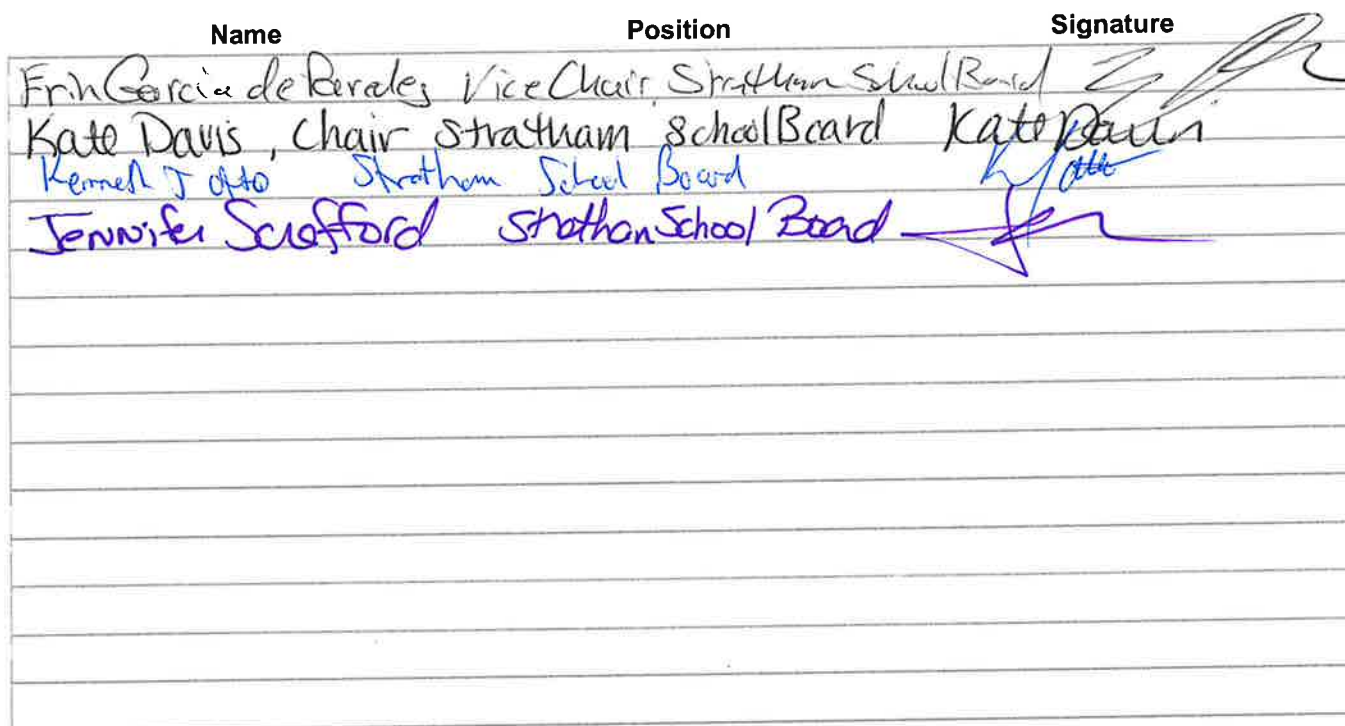 Name Position Signature
Erin Garcia de Parades Vice Chair, Stratham School Board
Kate Davis, Chair Stratham School Board Kate Davis
Kenneth J Otto Stratham School Board K J Otto
Jennifer Scrafford Stratham School Board